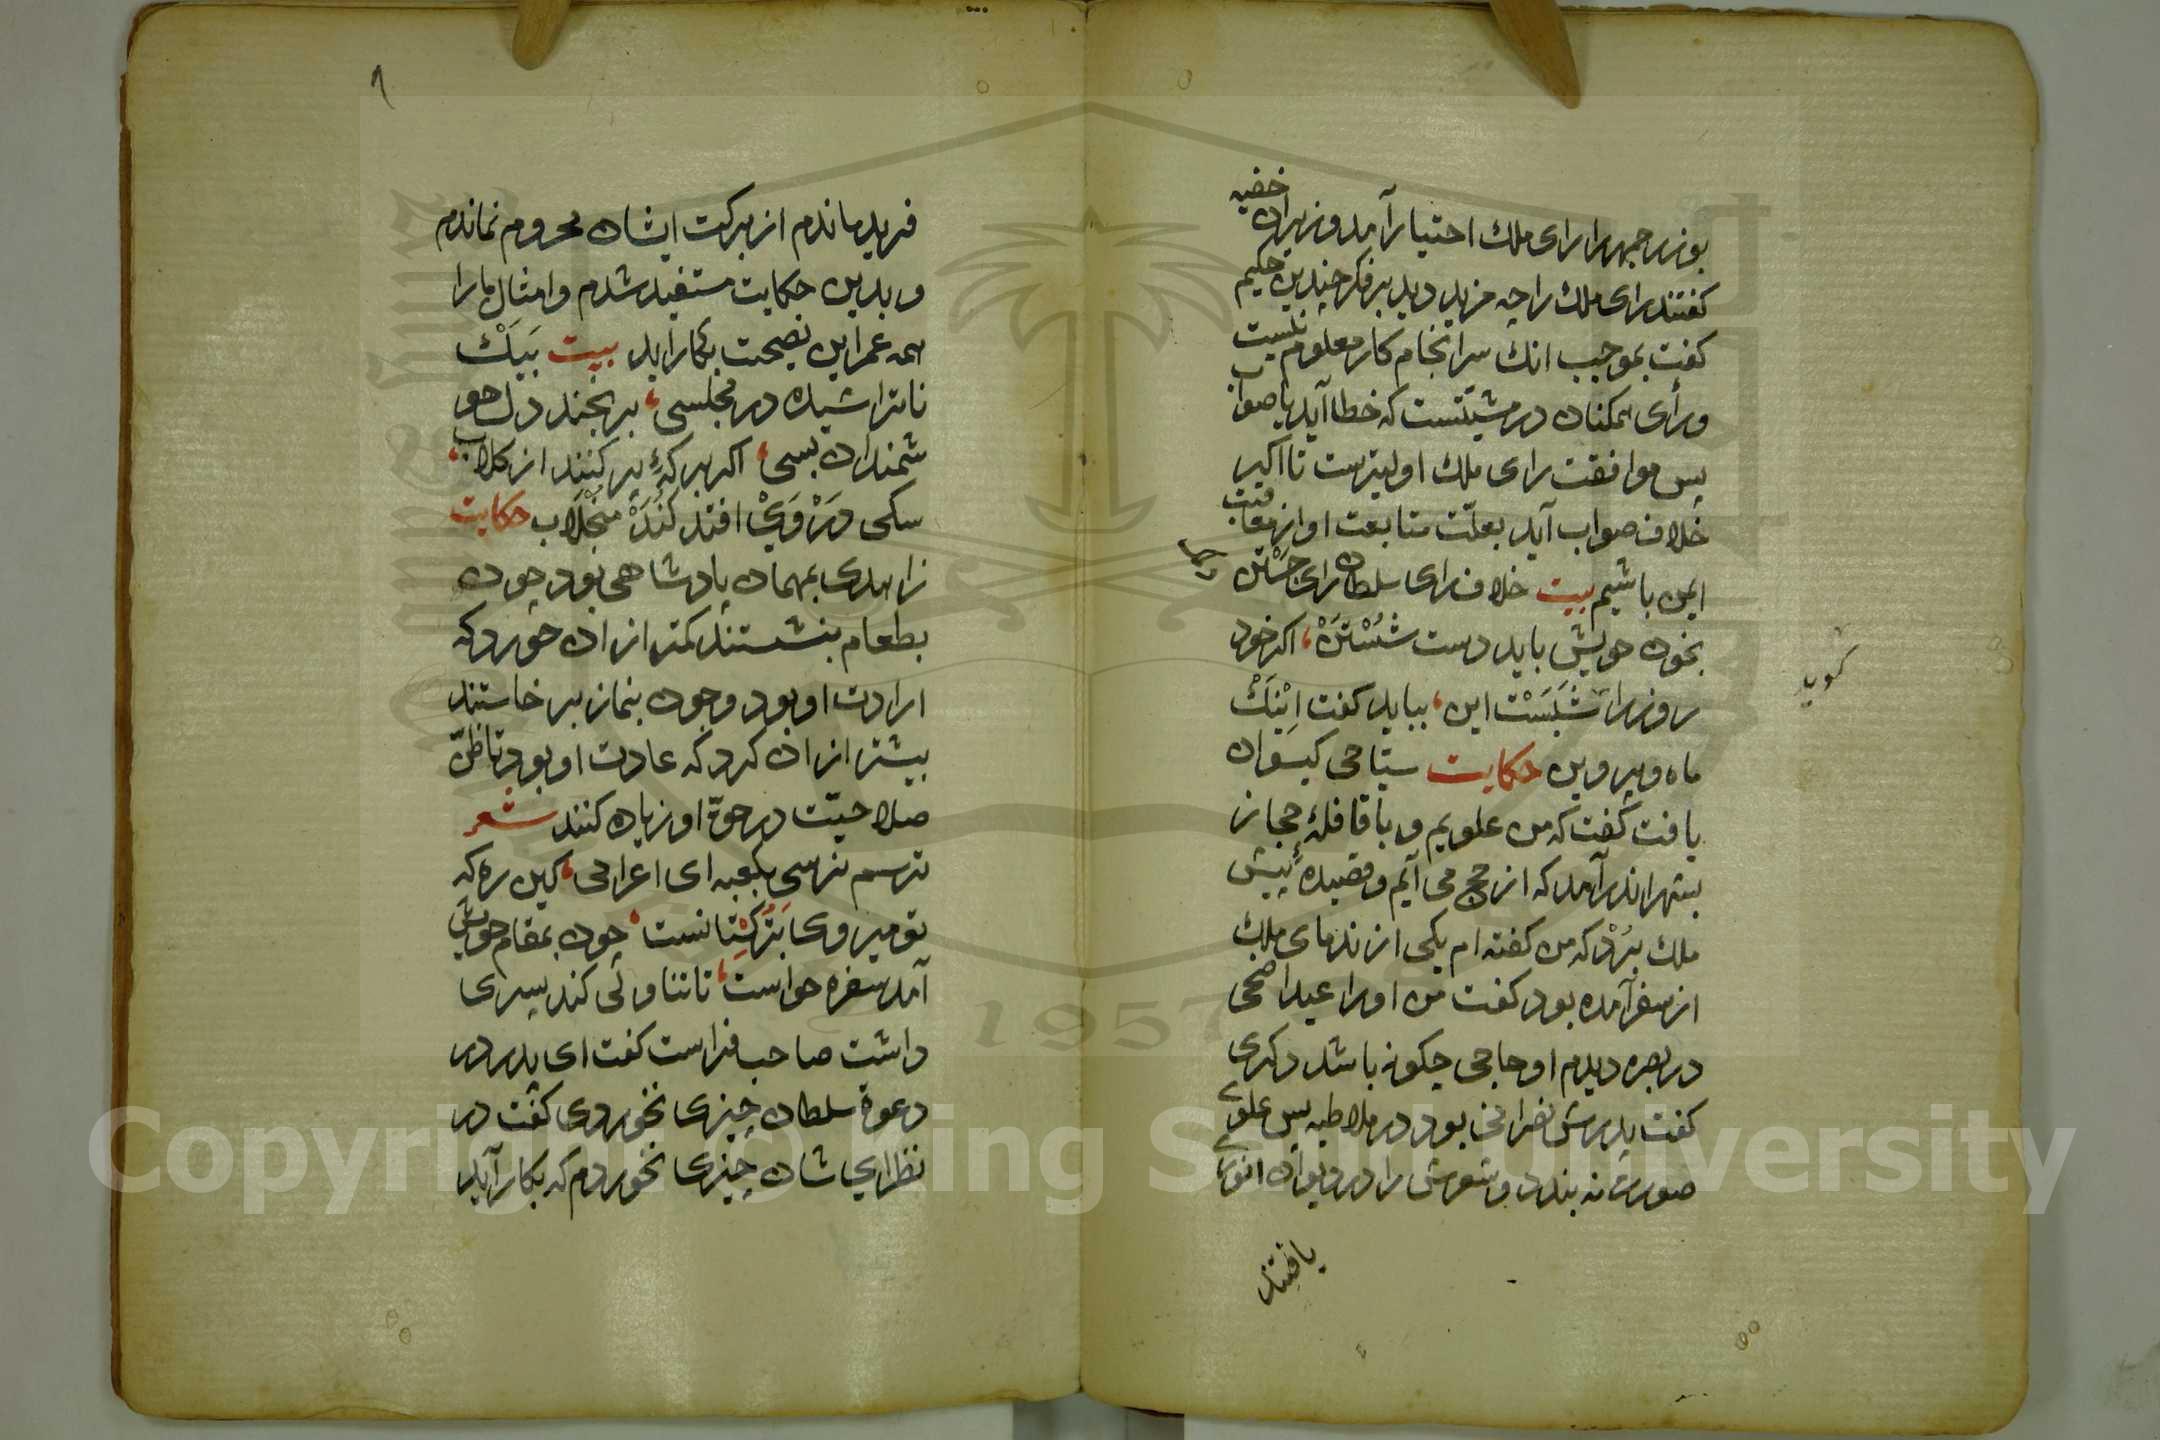 خفیه
بوزرجمهررا رای ملك احتیار آمد وزیران
کفتند رای ملك را چه مزید دید بر فکر چندین حکیم
کفت بموجب انك سرانجام کار معلوم نیست
ورأی همکنان در مشیّتست که خطا آید یا صواب
پس موافقت رای ملك اولیترست تا اکر
خلاف صواب آید بعلّت متابعت او از معاقبت
ایمن باشیم بیت خلاف رای سلطان رای جستن
بخون حویش باید دست شستن، اکر خود
روزرا شبست این، بباید کفت اینك
ماه و پروین حکایت سیّاحی کیسوان
بافت کفت که من علویم و با قافلهٔ حجاز
بشهر اندر آمد که از حج می آیم و قصیدهٔ پیش
ملك برد که من کفته ام یکی از ندمای ملك
از سفر آمده بود کفت من اورا عید اضحی
در بصره دیدم او حاجی چکونه باشد دکری
کفت پدرش نصرانی بود در ملاطیه پس علوی
صورت نه بندد و شعرش را در دیوان انوری
یافتند
کوید
۹
فرید ماندم از برکت ایشان محروم نماندم
و بدین حکایت مستفید شدم و امثال مارا
همه عمر این نصیحت بکار اید بیت بیك
ناتراشیده در مجلسی، برنجند دل هو
شمندان بسی، اکر برکهٔ پر کنند از کلاب،
سکی در وی افتد کند منجلاب حکایت
زاهدی بمهمان پادشاهی بود چون
بطعام بنشستند کمتر از ان خورد که
ارادت او بود وچون بنماز بر خاستند
بیشتر از ان کرد که عادت او بود تا ظنّ
صلاحیّت در حقّ او زیادن کنند شعر
ترسم نرسی بکعبه ای اعرابی، کین ره که
تو میروی بترکستانست، چون بمقام خویش
آمد سفره خواست، تا تناولی کند پسری
داشت صاحب فراست کفت ای پدر در
دعوة سلطان چیزی نخوردی کفت در
نظر ایشان چیزی نخوردم که بکار آید
Copyright © King Saud University
1957